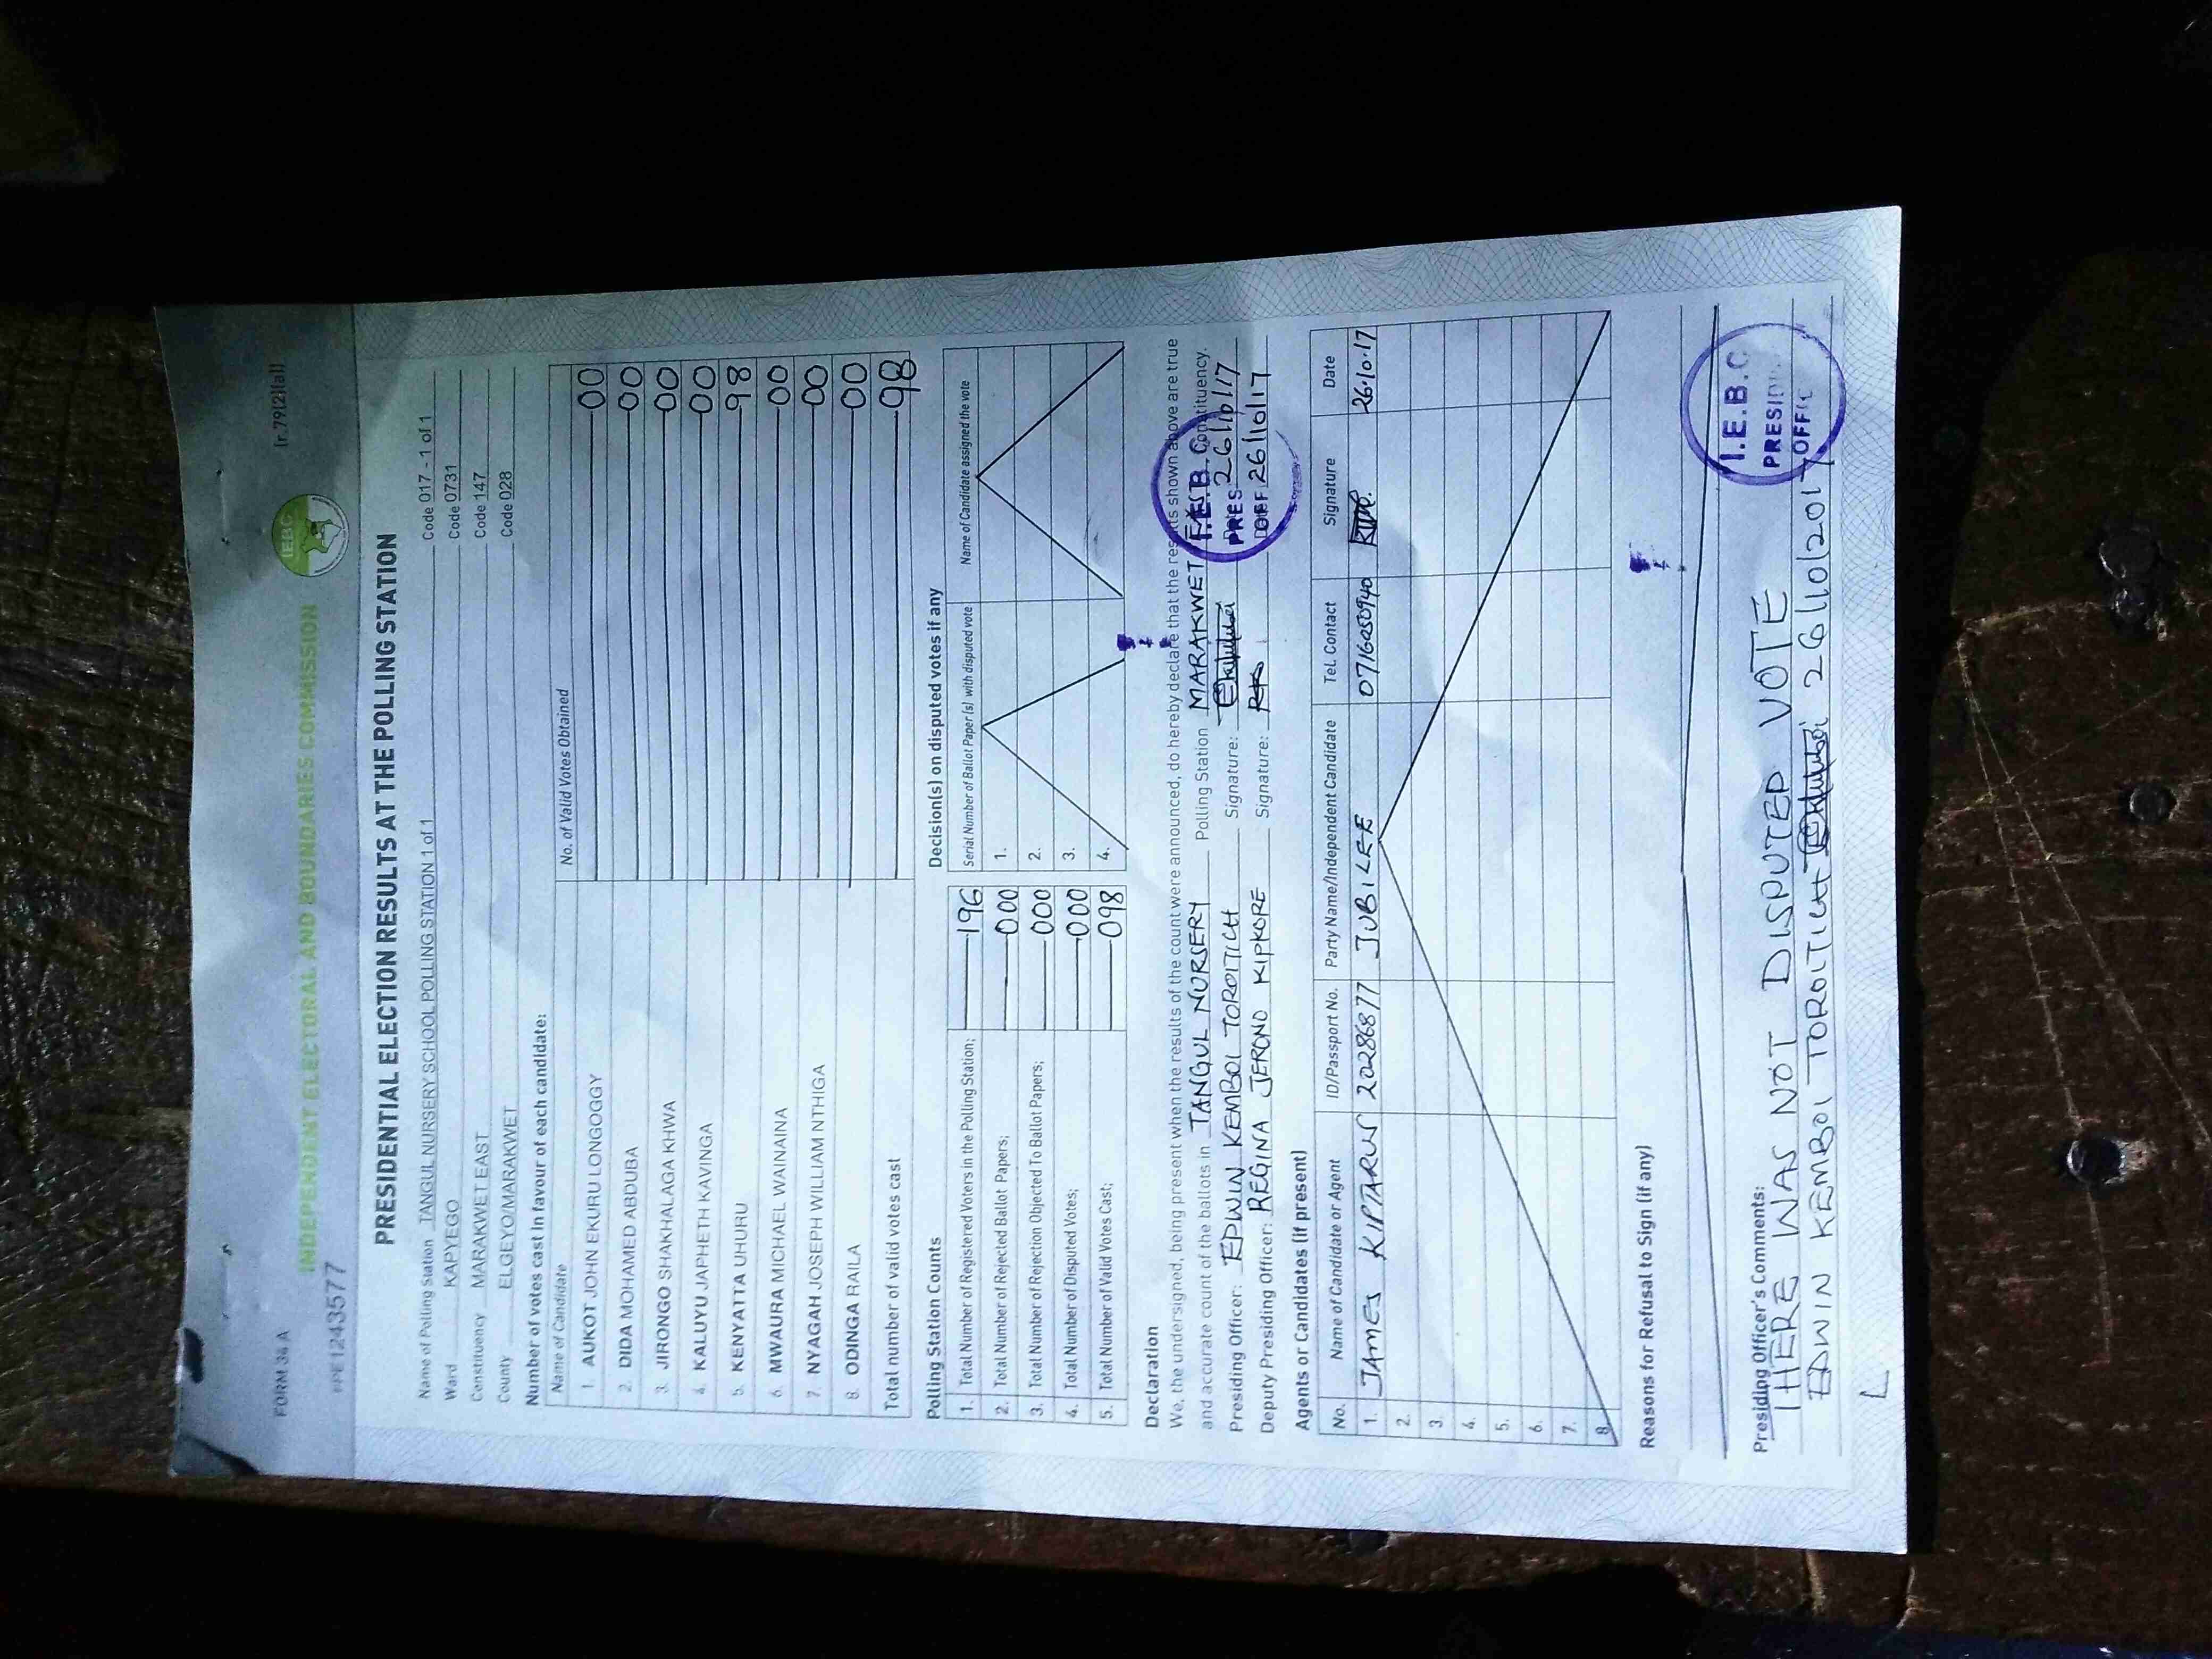 FORM 34 A
[r.79(2)(a)]
INDEPENDENT ELECTORAL AND BOUNDARIES COMMISSION
IEBC
1243577
PRESIDENTIAL ELECTION RESULTS AT THE POLLING STATION
Name of Polling Station TANGUL NURSERY SCHOOL POLLING STATION 1 of 1 Code 017 - 1 of 1
Ward KAPYEGO Code 0731
Constituency MARAKWET EAST Code 147
County ELGEYO/MARAKWET Code 028
Number of votes cast in favour of each candidate:
Name of Candidate No. of Valid Votes Obtained
1. AUKOT JOHN EKURU LONGOGGY 00
2. DIDA MOHAMED ABDUBA 00
3. JIRONGO SHAKHALAGA KHWA 00
4. KALUYU JAPHETH KAVINGA 00
5. KENYATTA UHURU 98
6. MWAURA MICHAEL WAINAINA 00
7. NYAGAH JOSEPH WILLIAM NTHIGA 00
8. ODINGA RAILA 00
Total number of valid votes cast 98
Polling Station Counts
1. Total Number of Registered Voters in the Polling Station; 196
2. Total Number of Rejected Ballot Papers; 000
3. Total Number of Rejection Objected To Ballot Papers; 000
4. Total Number of Disputed Votes; 000
5. Total Number of Valid Votes Cast; 098
Decision(s) on disputed votes if any
Serial Number of Ballot Paper(s) with disputed vote Name of Candidate assigned the vote
1.
2.
3.
4.
Declaration
We, the undersigned, being present when the results of the count were announced, do hereby declare that the results shown above are true
and accurate count of the ballots in TANGUL NURSERY Polling Station MARAKWET EAST Constituency.
Presiding Officer: EDWIN KEMBOI TOROITICH Signature: 26/10/17
Deputy Presiding Officer: REGINA JERONO KIPKORE Signature: 26/10/17
I.E.B.C.
PRES
OFF
Agents or Candidates (if present)
No. Name of Candidate or Agent ID/Passport No. Party Name/Independent Candidate Tel. Contact Signature Date
1. JAMES KIPTARUS 20286877 JUBILEE 0716050940 26.10.17
2.
3.
4.
5.
6.
7.
8.
Reasons for Refusal to Sign (if any)
Presiding Officer's Comments:
THERE WAS NOT DISPUTED VOTE
EDWIN KEMBOI TOROITICH 26/10/2017
I.E.B.C
PRESIDI
OFFIC